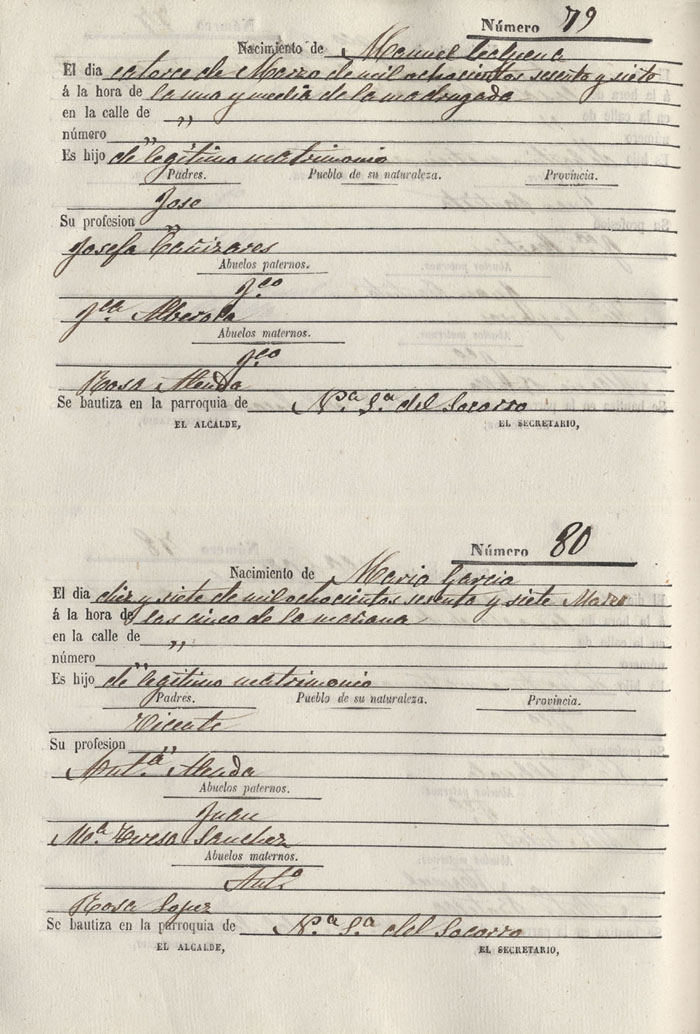 Número 79
Nacimiento de Manuel
El dia catorce de Marzo de mil ochocientos sesenta y siete
á la hora de la una y media de la madrugada
en la calle de "
número "
Es hijo de legitimo matrimonio
Padres. Pueblo de su naturaleza. Provincia.
Jose
Su profesion "
Josefa Cañizares
Abuelos paternos.
Fco
Fca. Alberola
Abuelos maternos.
Fco
Rosa Alenda
Se bautiza en la parroquia de Na. Sa. del Socorro
EL ALCALDE, EL SECRETARIO,
Número 80
Nacimiento de Maria Garcia
El dia diez y siete de mil ochocientos sesenta y siete Marzo
á la hora de las cinco de la mañana
en la calle de "
número "
Es hijo de legitimo matrimonio
Padres. Pueblo de su naturaleza. Provincia.
Vicente
Su profesion "
Anta. Alenda
Abuelos paternos.
Juan
Ma. Teresa Sanchez
Abuelos maternos.
Anto.
Rosa Lopez
Se bautiza en la parroquia de Na. Sa. del Socorro
EL ALCALDE, EL SECRETARIO,